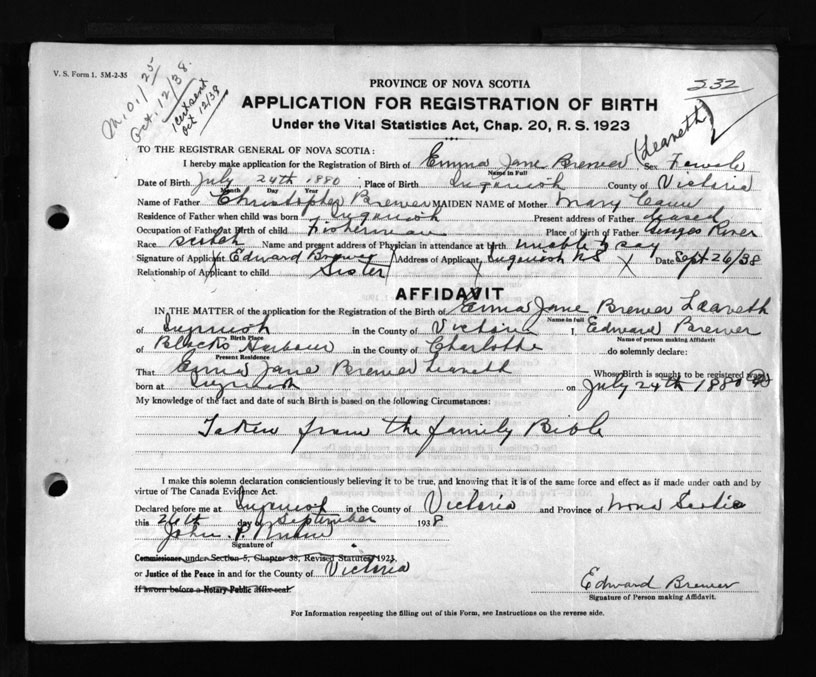 V. S. Form 1. 5M-2-35
M.O. 1/25
Oct. 12/38.
1 cert sent
Oct 12/38
532
PROVINCE OF NOVA SCOTIA
APPLICATION FOR REGISTRATION OF BIRTH
Under the Vital Statistics Act, Chap. 20, R. S. 1923
TO THE REGISTRAR GENERAL OF NOVA SCOTIA:
I hereby make application for the Registration of Birth of Emma Jane Brewer Sex Female
Name in Full
Date of Birth July 24th 1880, Place of Birth Ingonish County of Victoria
Month Day Year
Name of Father Christopher Brewer MAIDEN NAME of Mother Mary
Residence of Father when child was born Ingonish Present address of Father
Occupation of Father at Birth of child Fisherman Place of birth of Father River
Race Name and present address of Physician in attendance at birth unable to say
Signature of Applicant Edward Brewer Address of Applicant Ingonish NS X Date Sept 26/38
Relationship of Applicant to child Sister
AFFIDAVIT
IN THE MATTER of the application for the Registration of the Birth of Emma Jane Brewer
Name in full
of Ingonish in the County of Victoria I, Edward Brewer
Birth Place Name of person making Affidavit
of Blacks Harbour in the County of Charlotte do solemnly declare:
Present Residence
That Emma Jane Brewer Whose Birth is sought to be registered was
born at Ingonish on July 24th 1880
My knowledge of the fact and date of such Birth is based on the following Circumstances:
Taken from the family Bible
I make this solemn declaration conscientiously believing it to be true, and knowing that it is of the same force and effect as if made under oath and by
virtue of The Canada Evidence Act.
Declared before me at Ingonish in the County of Victoria and Province of Nova Scotia
this 26th day of September 1938
John P.
Signature of
Commissioner under Section 5, Chapter 38, Revised Statutes 1923,
or Justice of the Peace in and for the County of Victoria
If sworn before a Notary Public affix seal.
Edward Brewer
Signature of Person making Affidavit.
For Information respecting the filling out of this Form, see Instructions on the reverse side.